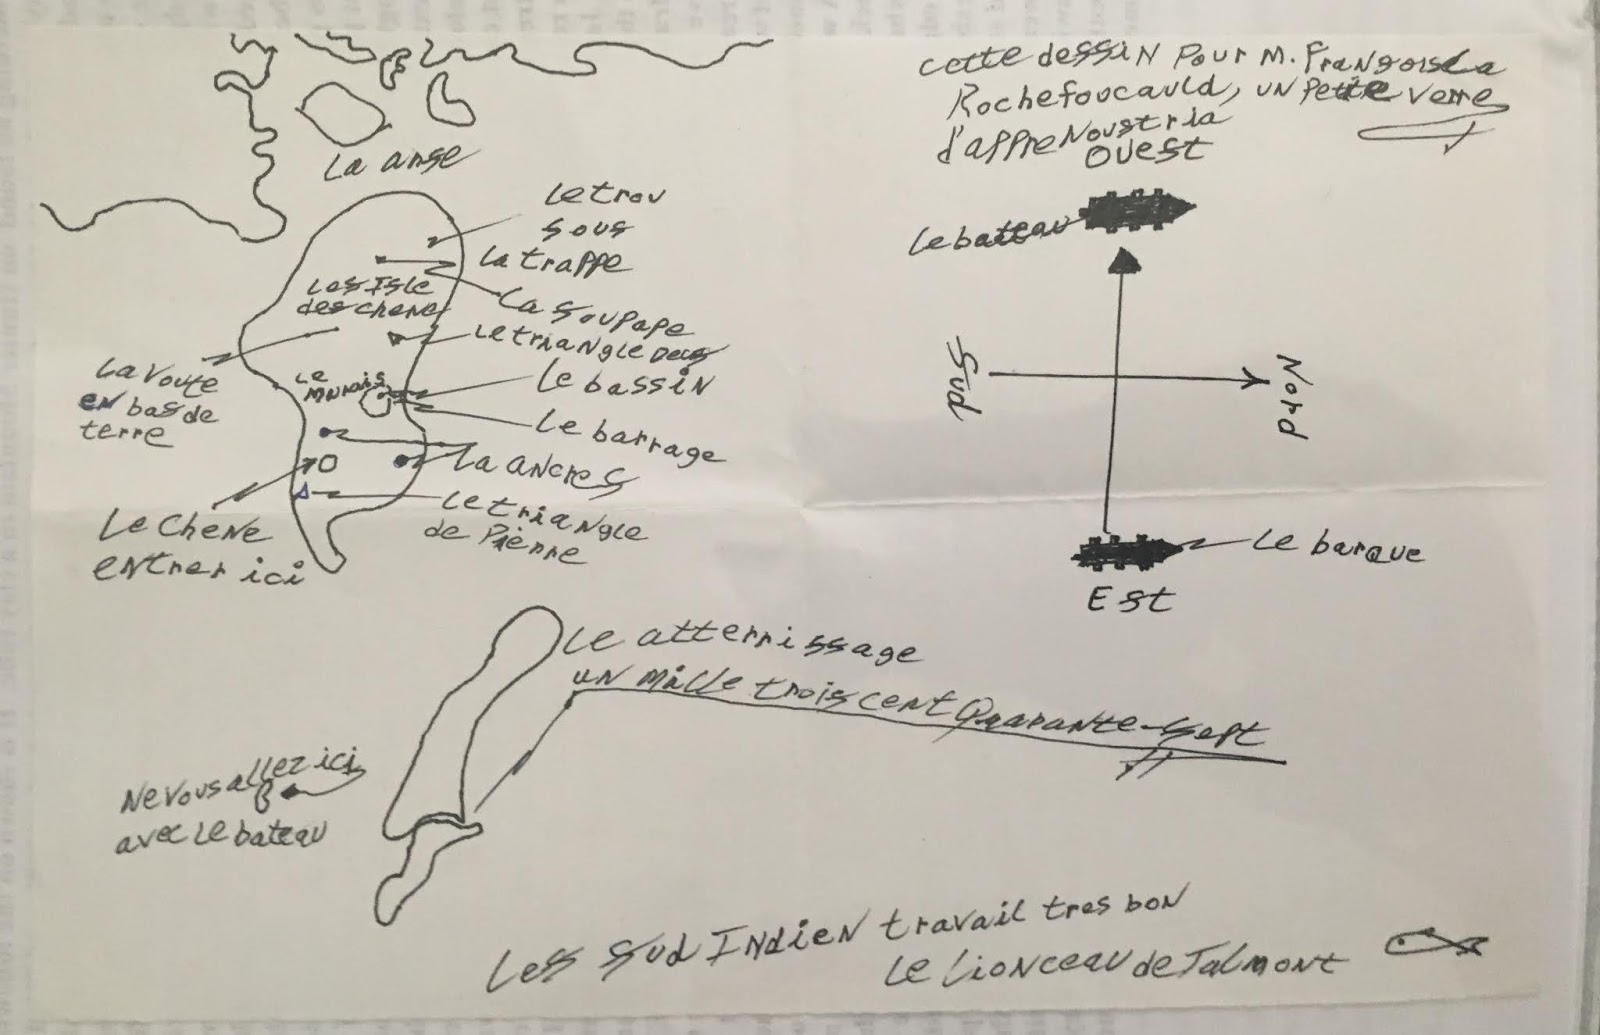 cette dessin pour M. Françoise La
Rochefoucauld, un petite verre
d'appre Noustria
Ouest
La anse
Le trou
sous
La trappe
Les Isle
des chene
La soupape
Le triangle Deux
La voute
en bas de
terre
Le
Marais
Le bassin
Le barrage
La ancres
Le triangle
de Pierre
Le Chene
entrer ici
Le bateau
Sud
Nord
Le barque
Est
Le atterrissage
un mille trois cent Quarante-sept
Ne vous allez ici
avec Le bateau
Les Sud Indien travail tres bon
Le Lionceau de Talmont